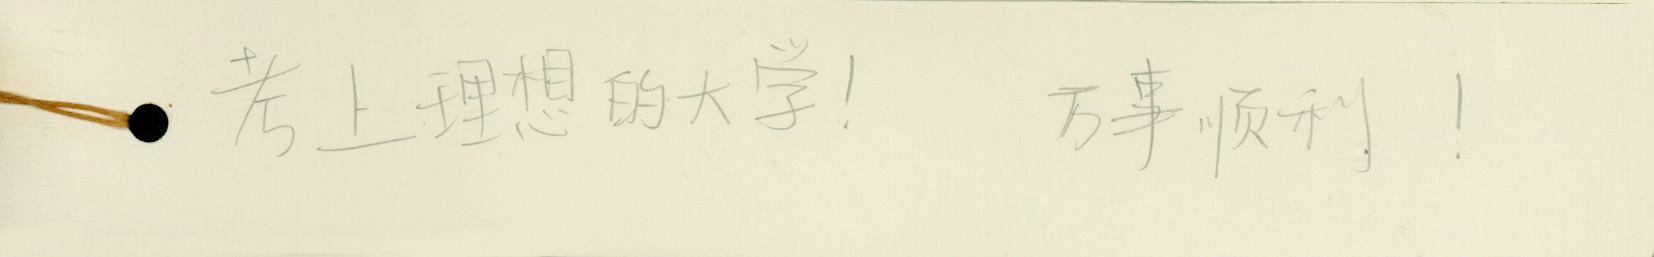 考上理想的大学! 万事顺利!